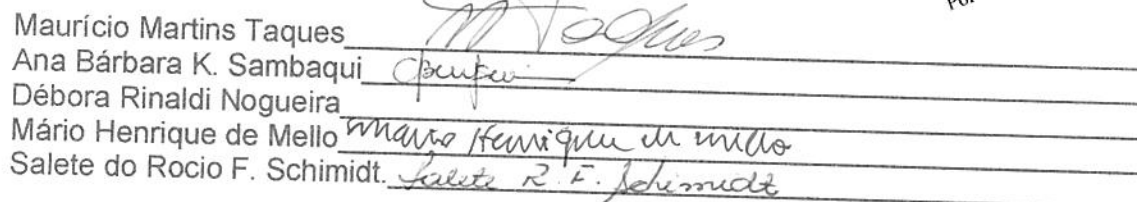 Maurício Martins Taques M Taques
Ana Bárbara K. Sambaqui
Débora Rinaldi Nogueira
Mário Henrique de Mello Mario Henrique de Mello
Salete do Rocio F. Schimidt. Salete R. F. Schimidt